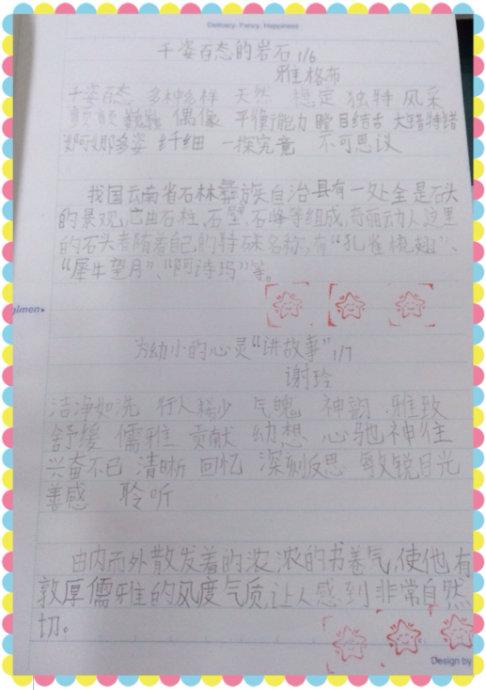 Delicacy, Fancy, Happiness
千姿百态的岩石 1/6
雅格布
千姿百态 多种多样 天然 稳定 独特 风采
颤颤巍巍 偶像 平衡能力 瞠目结舌 大错特错
婀娜多姿 纤细 一探究竟 不可思议
我国云南省石林彝族自治县有一处全是石头
的景观,它由石柱、石壁、石峰等组成,奇丽动人,这里
的石头都有着自己的特殊名称,有“孔雀梳翅”、
“犀牛望月”、“阿诗玛”等。
为幼小的心灵“讲故事” 1/7
谢玲
洁净如洗 行人稀少 气魄 神韵 雅致
舒缓 儒雅 贡献 幻想 心驰神往
兴奋不已 清晰 回忆 深刻反思 敏锐目光
善感 聆听
由内而外散发着的浓浓的书卷气,使他有
敦厚儒雅的风度气质,让人感到非常自然
切。
Design by